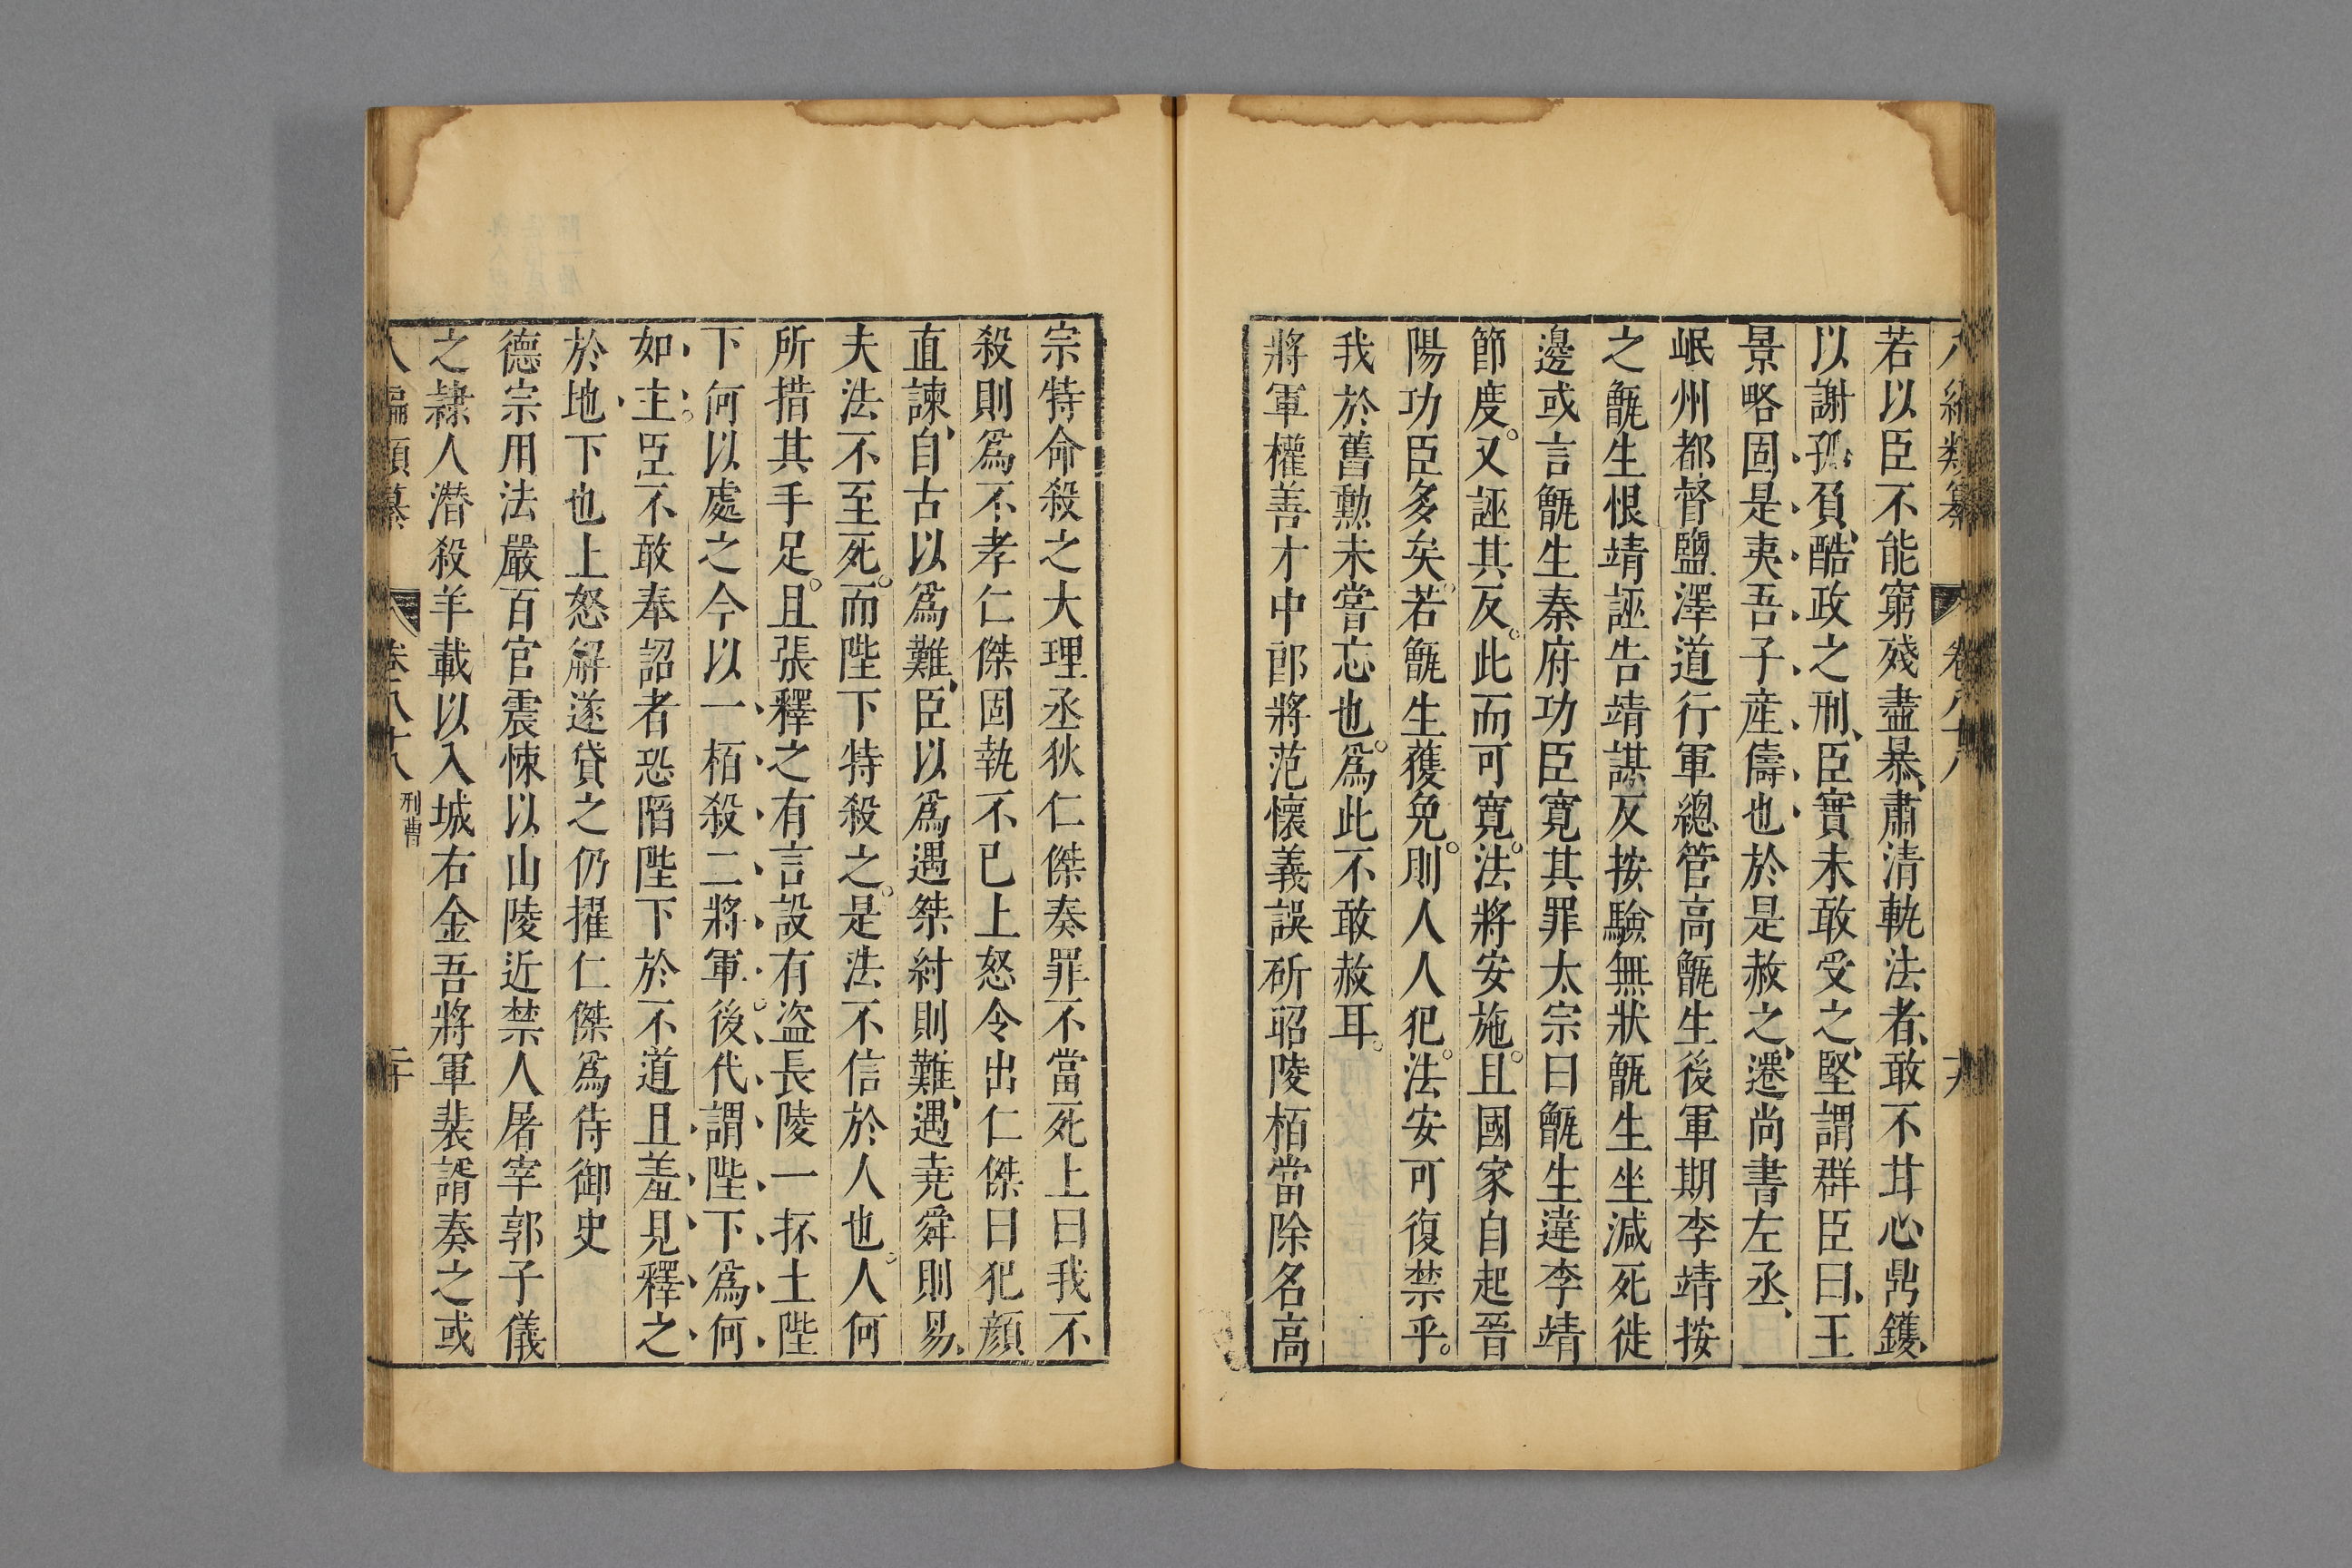 八編類纂 卷八十八 十九
若以臣不能窮殘盡暴、肅清軌法者、敢不甘心鼎鑊、
以謝孤負、酷政之刑、臣實未敢受之、堅謂群臣曰、王
景略固是夷吾子産儔也於是赦之、遷尚書左丞、
岷州都督鹽澤道行軍總管高甑生後軍期李靖按
之甑生恨靖誣告靖謀反按驗無狀甑生坐減死徙
邊或言甑生秦府功臣寛其罪太宗曰甑生違李靖
節度。又誣其反。此而可寛。法將安施。且國家自起晉
陽功臣多矣。若甑生獲免。則人人犯。法安可復禁乎。
我於舊勳未嘗忘也。爲此不敢赦耳。
將軍權善才中郎將范懷義誤斫昭陵栢當除名高
宗特命殺之大理丞狄仁傑奏罪不當死上曰我不
殺則爲不孝仁傑固執不已上怒令出仁傑曰犯顏
直諫、自古以爲難、臣以爲遇桀紂則難、遇堯舜則易、
夫法不至死。而陛下特殺之。是法不信於人也。人何
所措其手足。且張釋之有言設有盜長陵一抔土陛
下何以處之今以一栢殺二將軍。後代謂陛下爲何
如主。臣不敢奉詔者恐陷陛下於不道且羞見釋之
於地下也上怒解遂貸之仍擢仁傑爲侍御史
德宗用法嚴百官震悚以山陵近禁人屠宰郭子儀
之隷人潛殺羊載以入城右金吾將軍裴諝奏之或
八編類纂 卷八十八 刑曹 二十